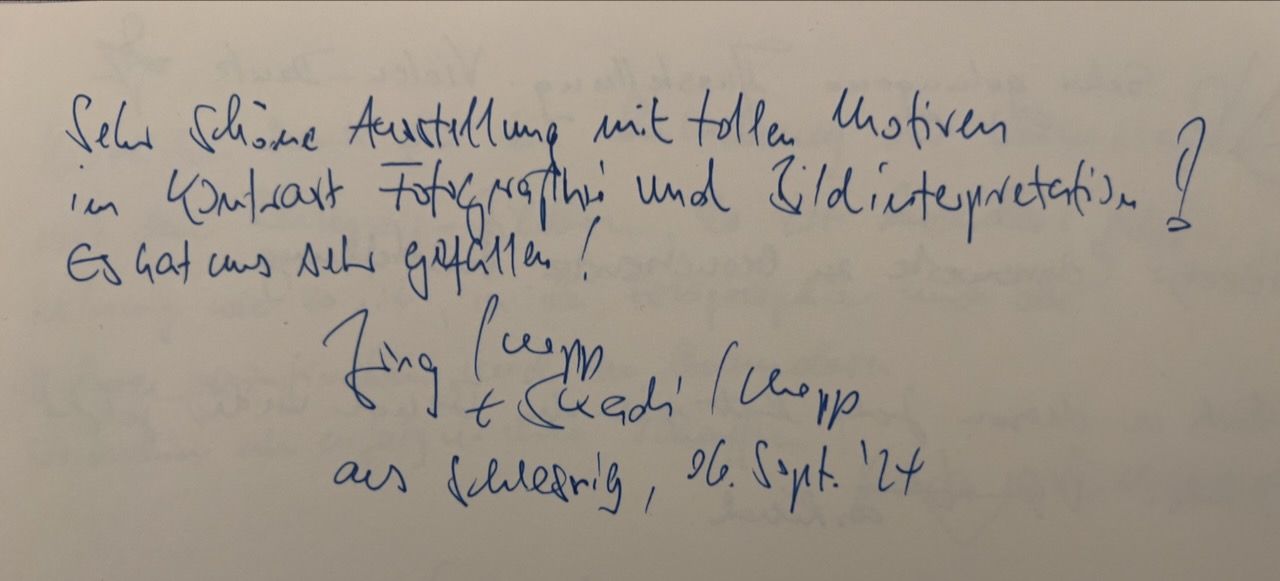 Sehr schöne Ausstellung mit tollen Motiven
im Kontrast Fotographie und Bildinterpretation!
Es hat uns sehr gefallen!
Jörg
+ Skadi
aus Schleswig, 06. Sept. '24